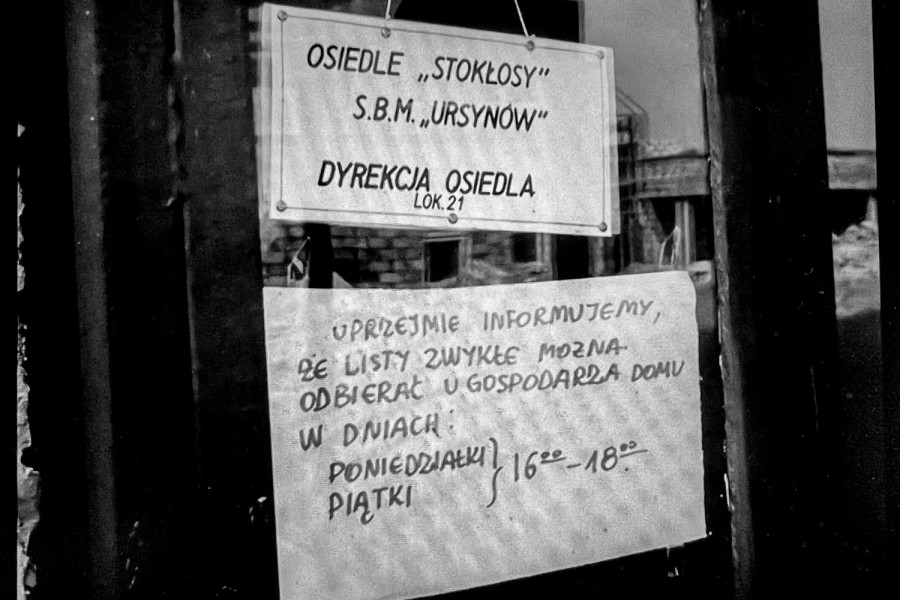 OSIEDLE „STOKŁOSY"
S.B.M. „URSYNÓW"
DYREKCJA OSIEDLA
LOK. 21
UPRZEJMIE INFORMUJEMY,
ŻE LISTY ZWYKŁE MOŻNA
ODBIERAĆ U GOSPODARZA DOMU
W DNIACH:
PONIEDZIAŁKI } 16⁰⁰ – 18⁰⁰
PIĄTKI